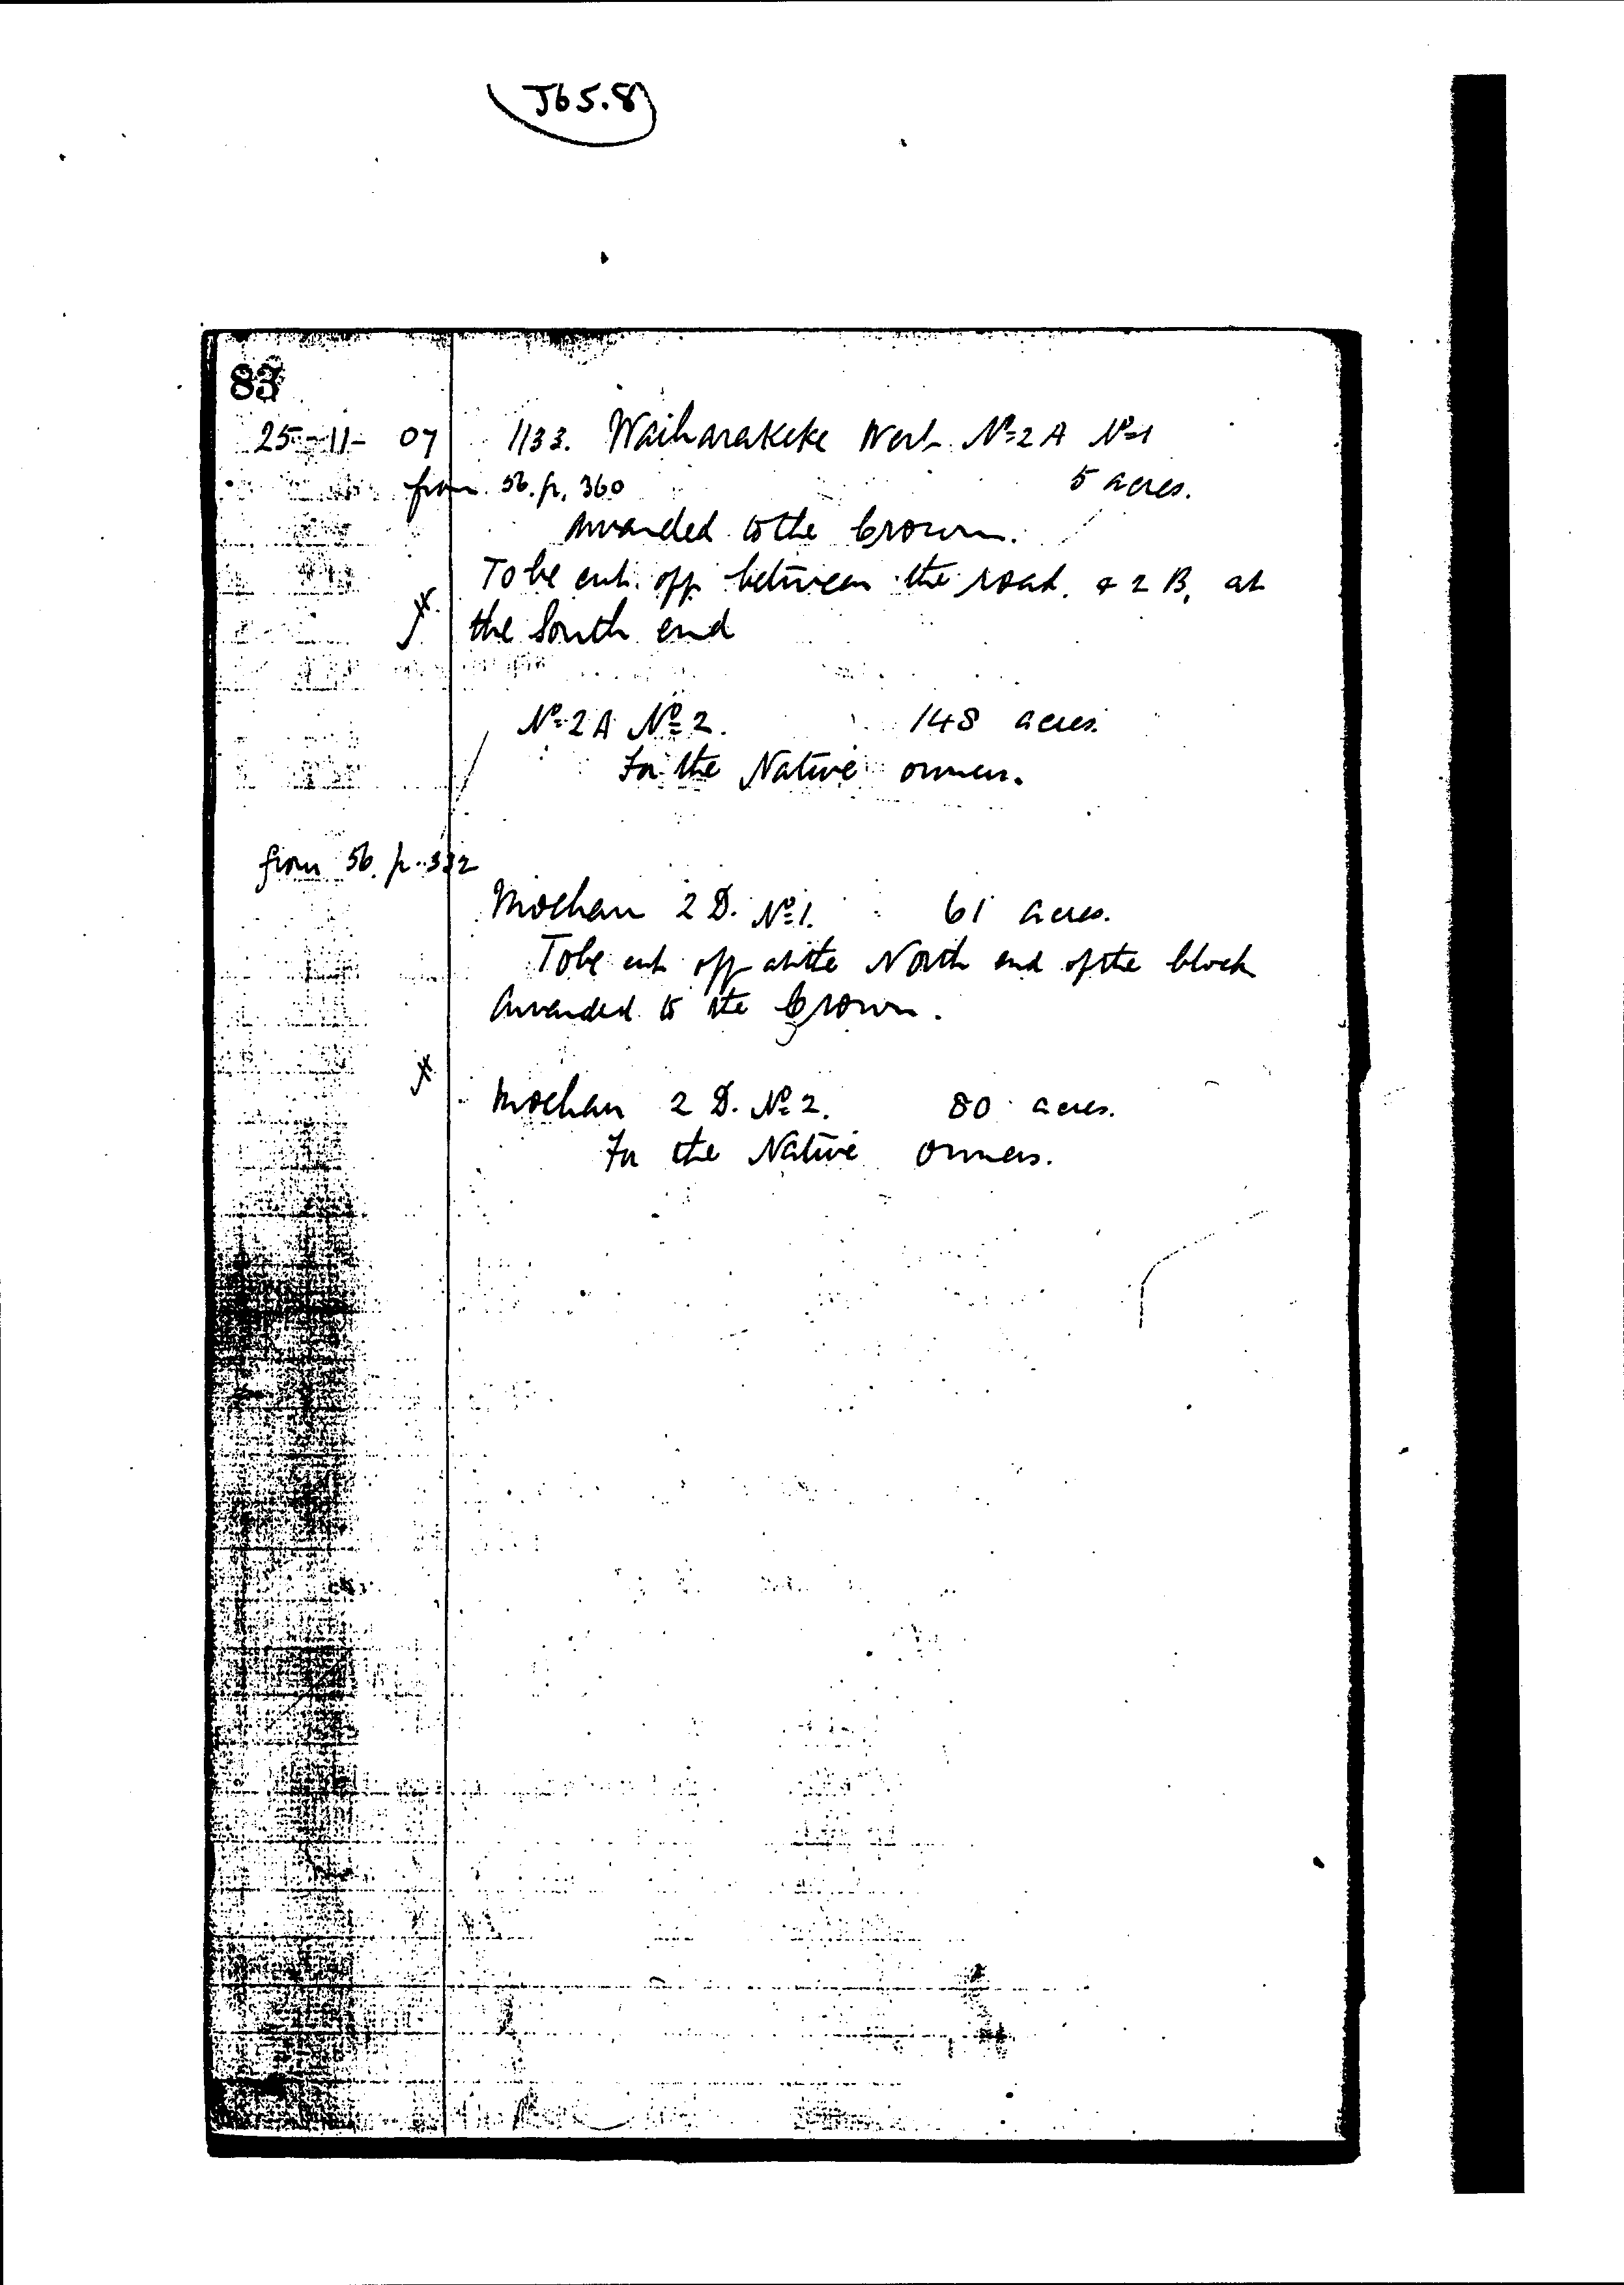 J65.8
83
25-11-07 1133. Waiharakeke West Nº 2A Nº 1
from 56. p. 360 5 acres.
Awarded to the Crown.
To be cut off between the road & 2 B, at
the South end
Nº 2A Nº 2. 148 acres.
For the Native owners.
from 56. p. 332
Moehau 2 D. Nº 1. 61 acres.
To be cut off at the North end of the block
Awarded to the Crown.
Moehau 2 D. Nº 2. 80 acres.
For the Native owners.